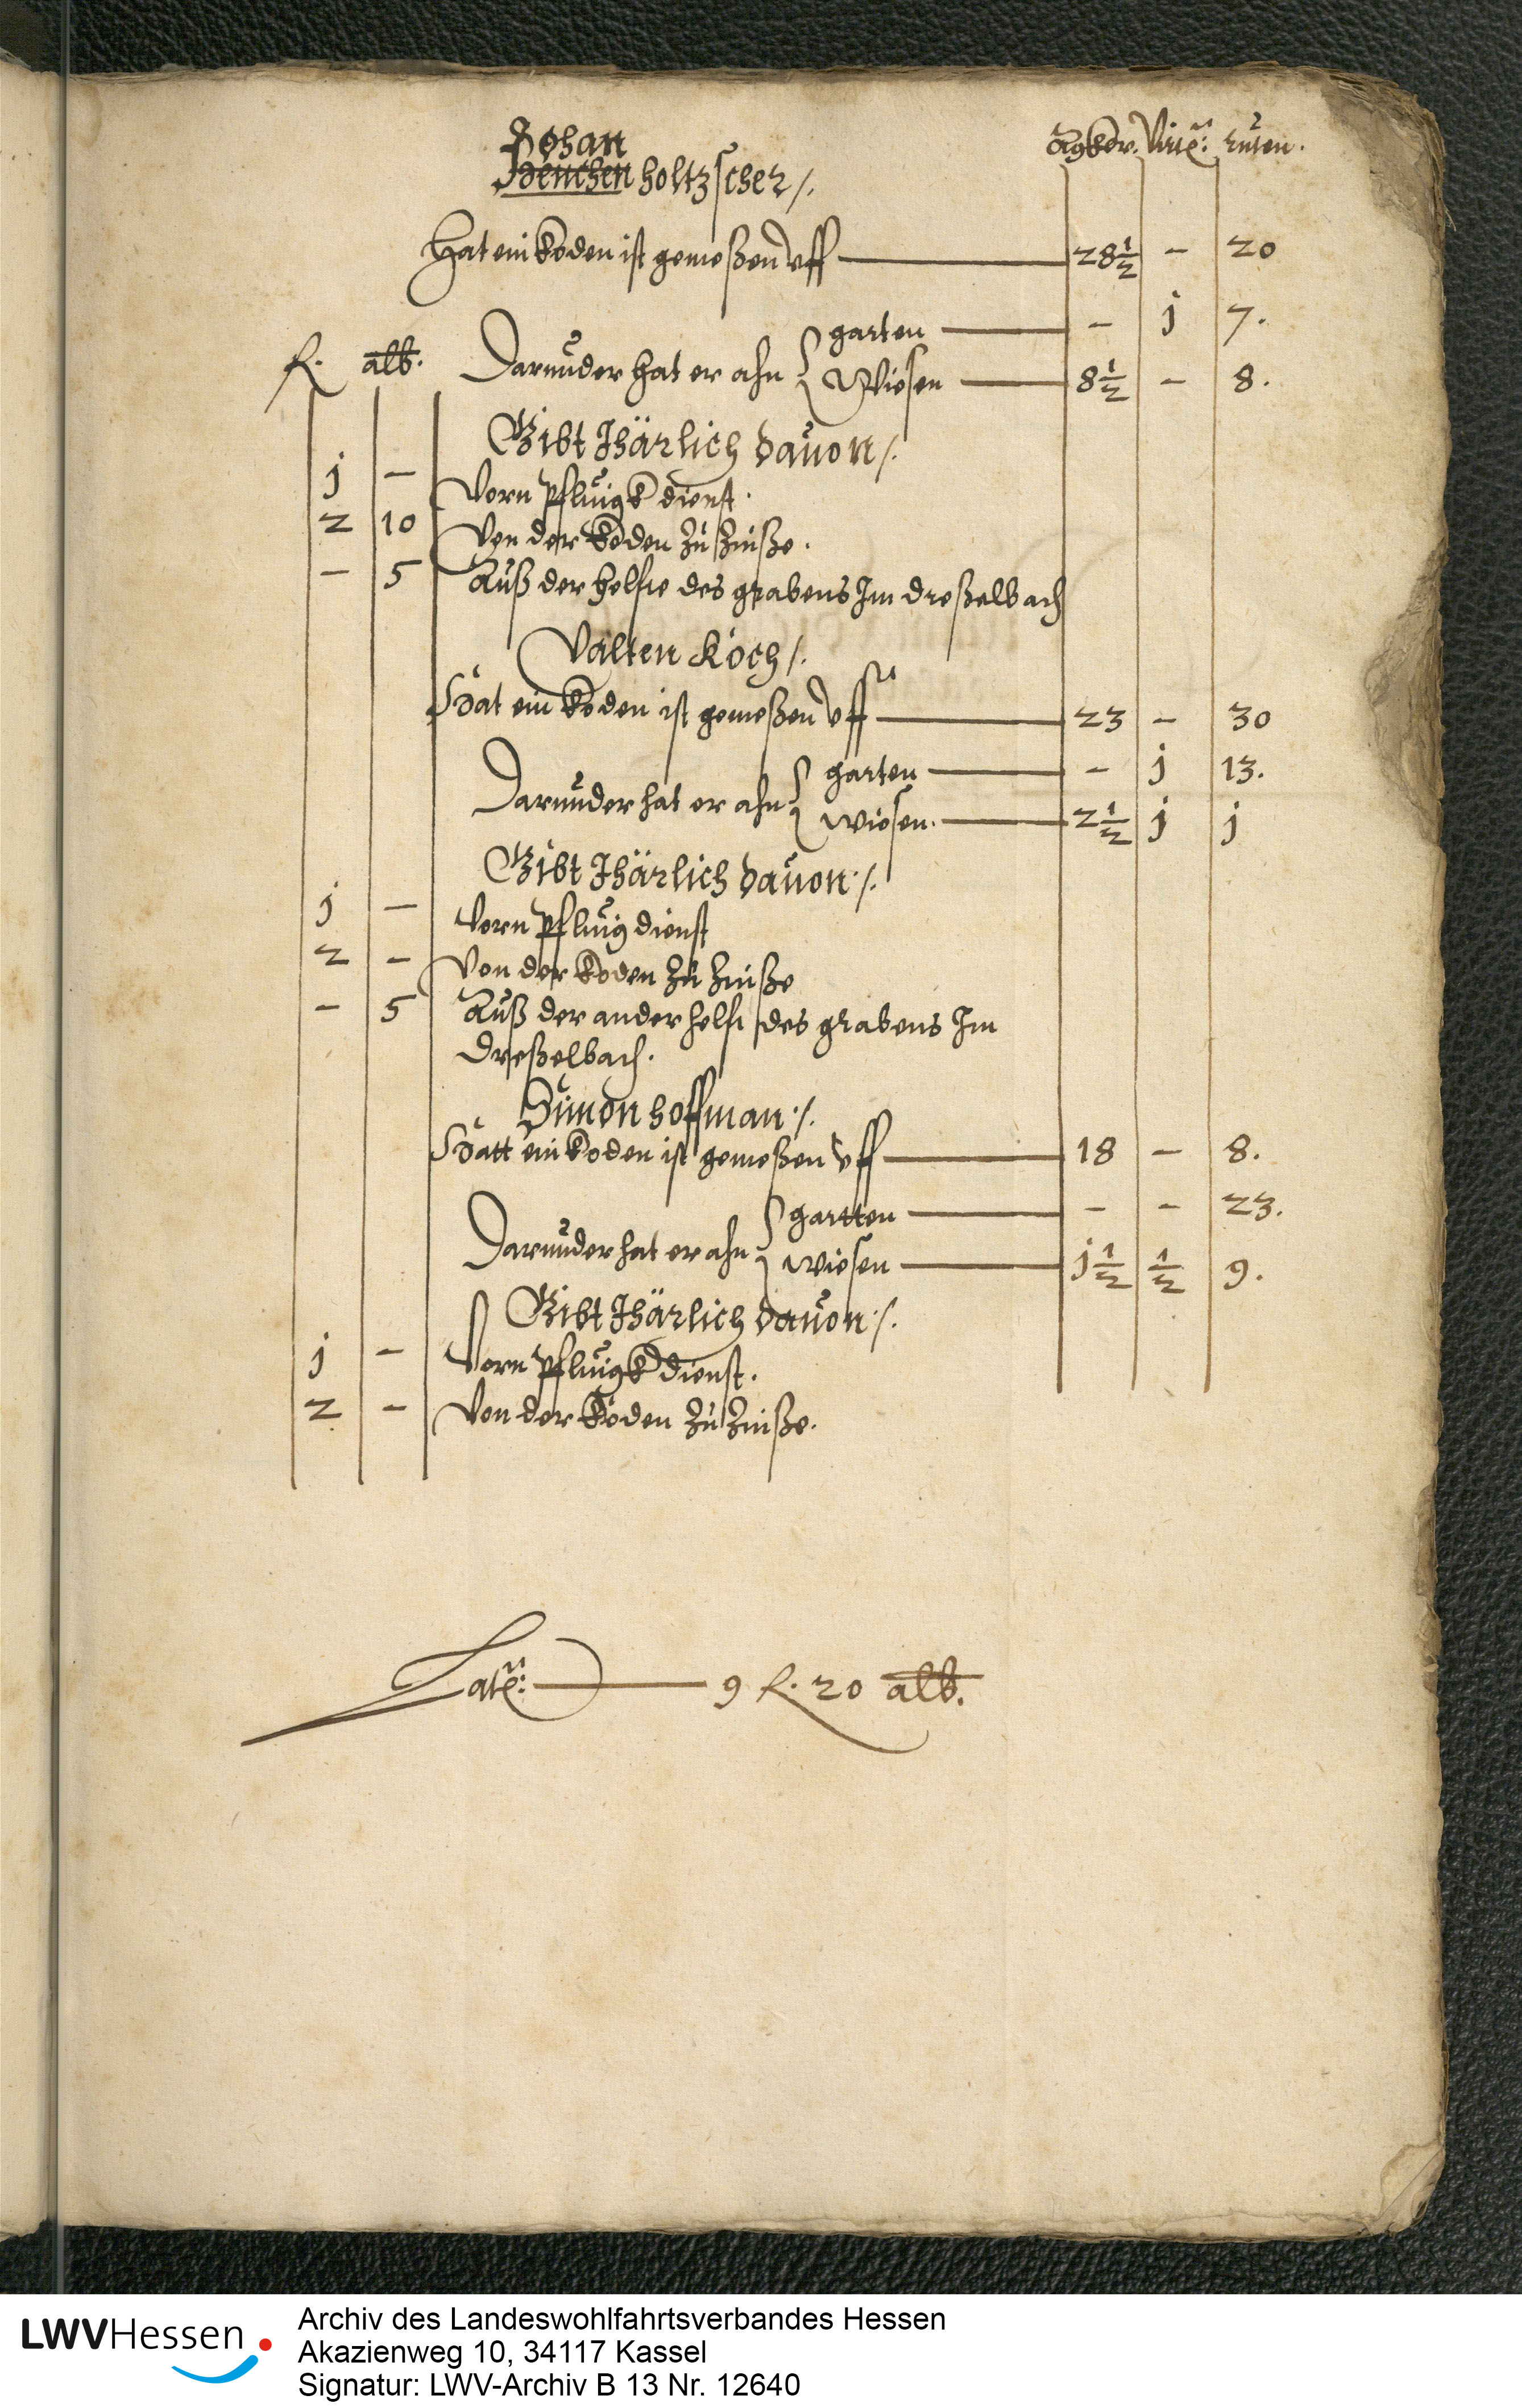 Johan
agker. Virte: ruten.
Henchen holtzscher /.
Hat ein koden ist gemeßen vff — 28½ - 20
garten — - j 7.
fl. alb. Darunder hat er ahn
Wiesen — 8½ - 8.
Gibt Jhärlich davon /.
j - Vorn pflugk dienst.
2 10 Von der koden zu Zinße.
- 5 Auß der helfte des grabens Im dreßelbach
Valten Koch /.
Hat ein koden ist gemeßen vff — 23 - 30
garten — - j 13.
Darunder hat er ahn
wiesen. — 2½ j j
Gibt Jhärlich davon ./.
j - Vorn pflug dienst
2 - Von der koden zu Zinße
- 5 Auß der ander helft des grabens Im
dreßelbach.
Simon hoffman ./.
Hatt ein koden ist gemeßen vff — 18 - 8.
gartten — - - 23.
Darunder hat er ahn
wiesen — j½ ½ 9.
Gibt Jhärlich davon ./.
j - Vorn pflugk dienst.
2 - Von der koden zu Zinße.
Late: — 9 fl. 20 alb.
LWVHessen
Archiv des Landeswohlfahrtsverbandes Hessen
Akazienweg 10, 34117 Kassel
Signatur: LWV-Archiv B 13 Nr. 12640